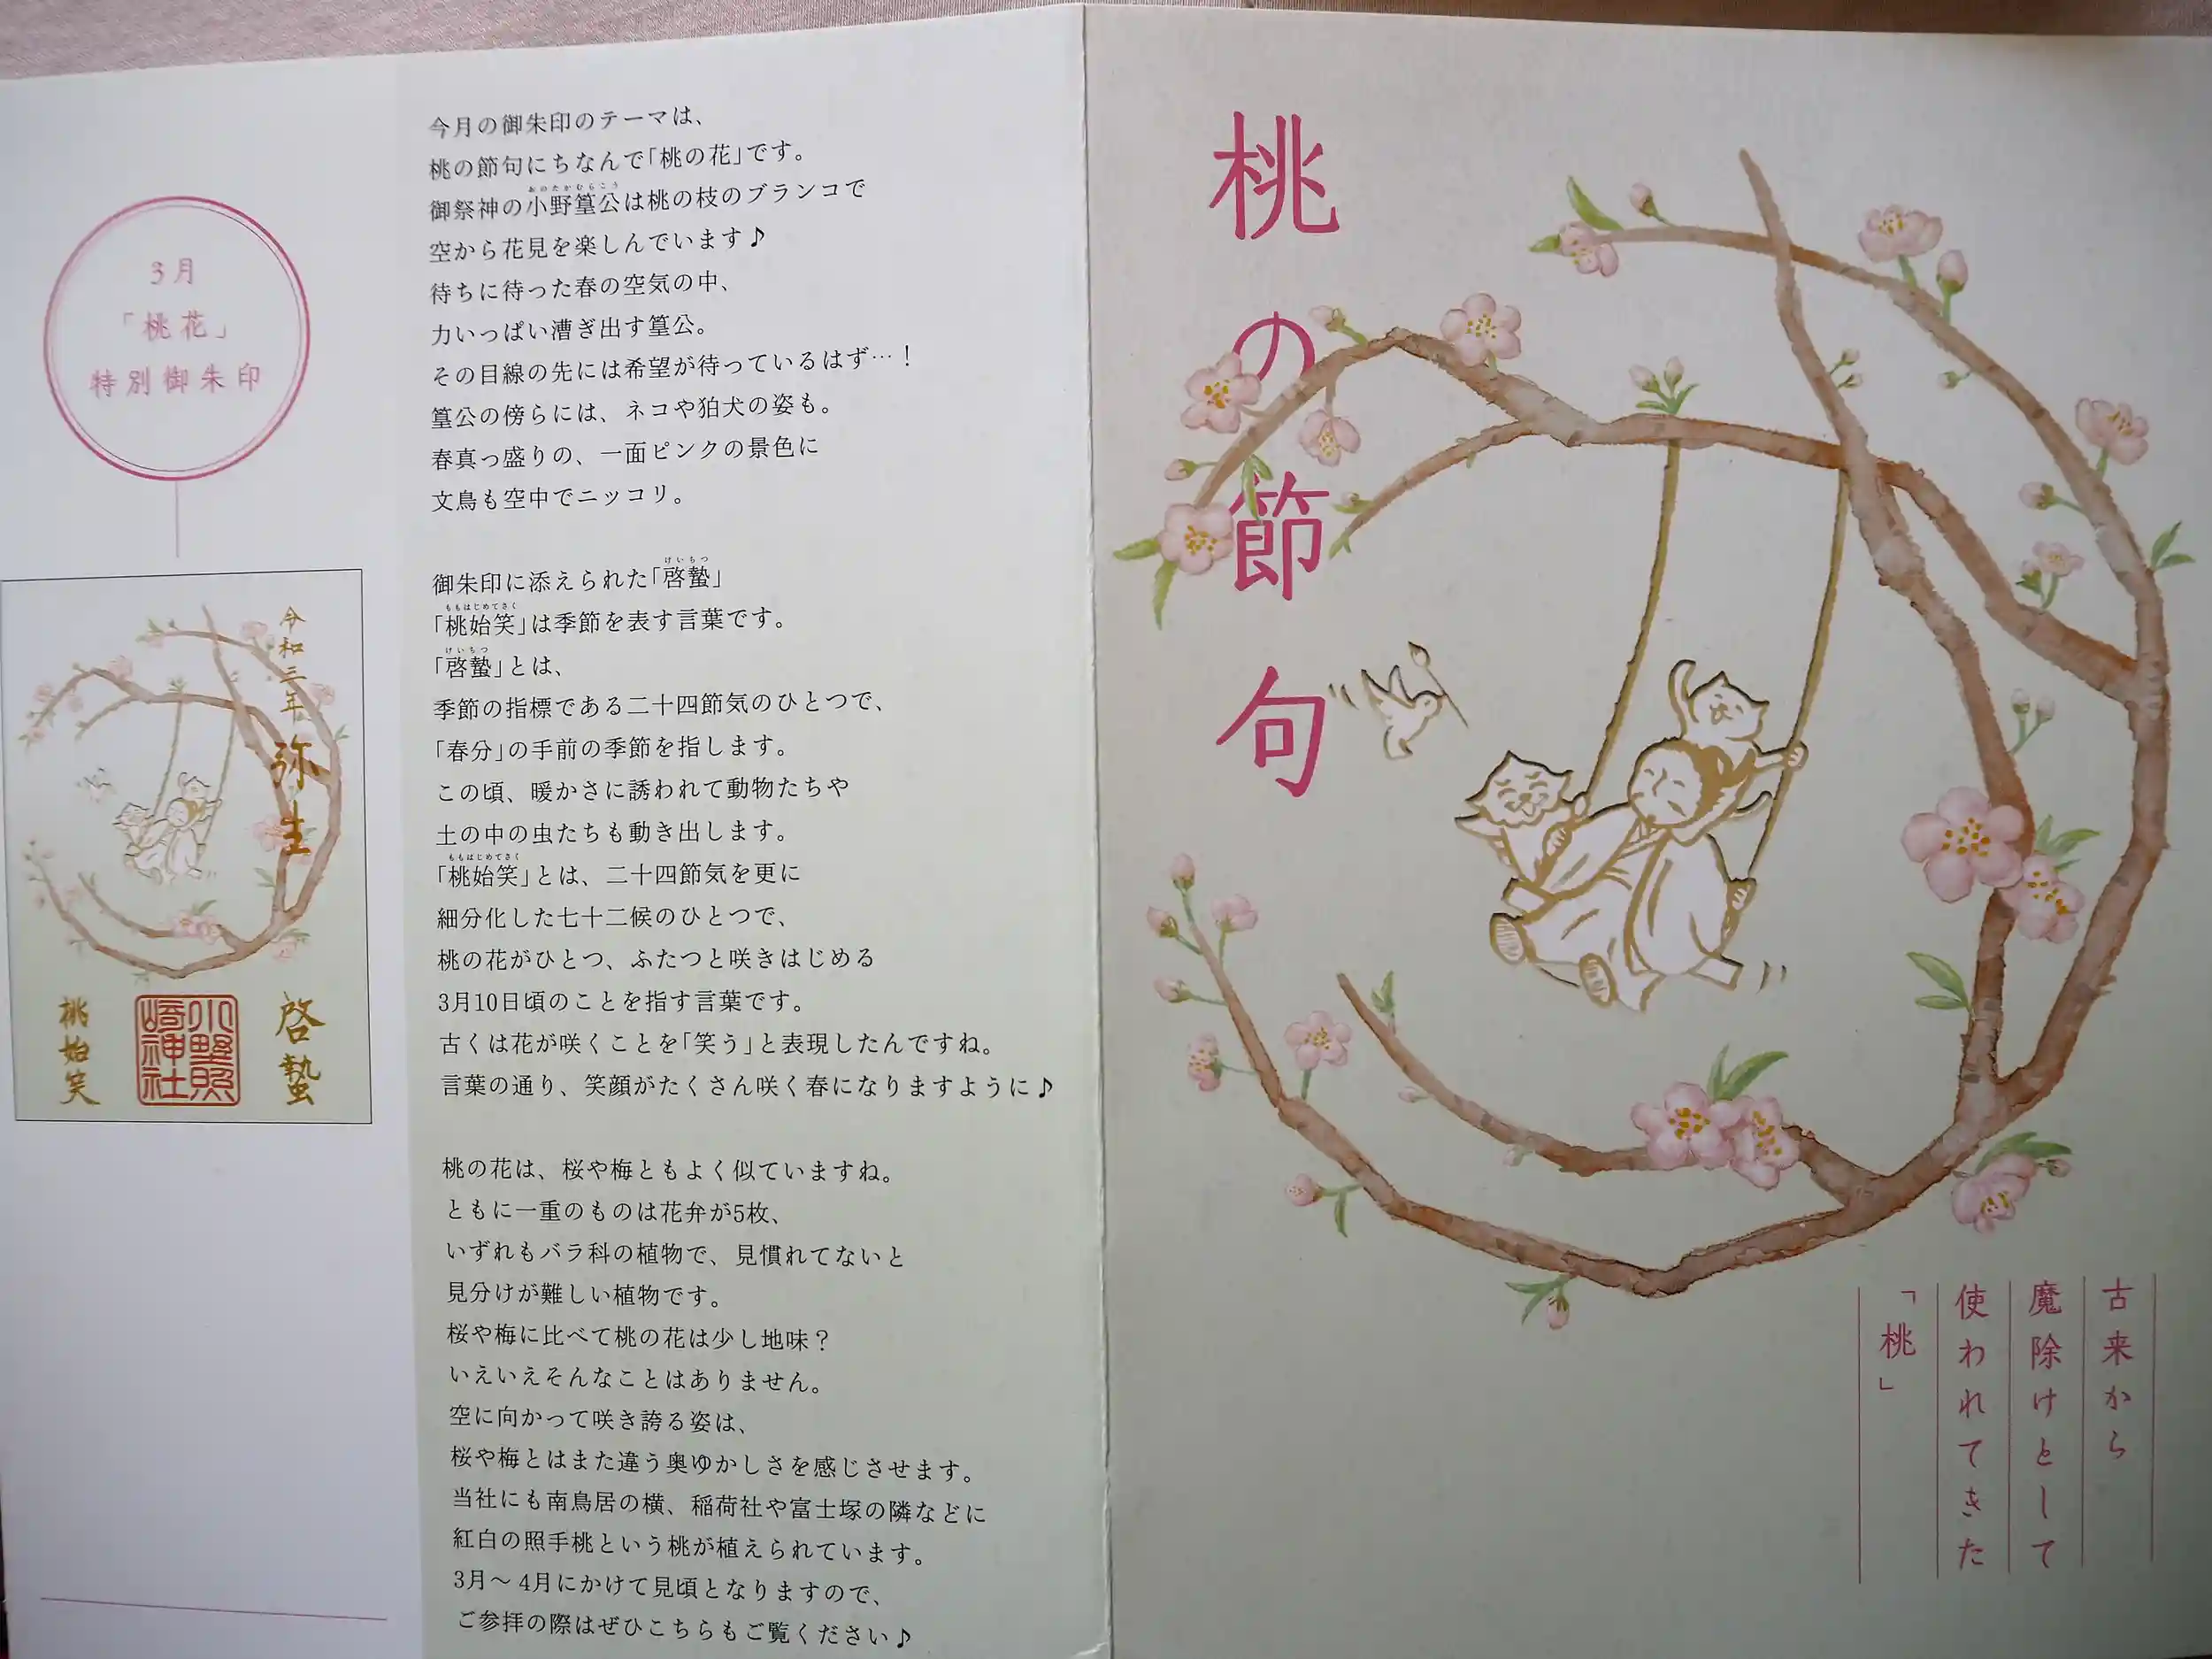 3月
「桃花」
特別御朱印
令和三年
弥生
啓蟄
小野照
崎神社
桃始笑
今月の御朱印のテーマは、
桃の節句にちなんで「桃の花」です。
おのたかむらこう
御祭神の小野篁公は桃の枝のブランコで
空から花見を楽しんでいます♪
待ちに待った春の空気の中、
力いっぱい漕ぎ出す篁公。
その目線の先には希望が待っているはず…！
篁公の傍らには、ネコや狛犬の姿も。
春真っ盛りの、一面ピンクの景色に
文鳥も空中でニッコリ。
けいちつ
御朱印に添えられた「啓蟄」
ももはじめてさく
「桃始笑」は季節を表す言葉です。
けいちつ
「啓蟄」とは、
季節の指標である二十四節気のひとつで、
「春分」の手前の季節を指します。
この頃、暖かさに誘われて動物たちや
土の中の虫たちも動き出します。
ももはじめてさく
「桃始笑」とは、二十四節気を更に
細分化した七十二候のひとつで、
桃の花がひとつ、ふたつと咲きはじめる
3月10日頃のことを指す言葉です。
古くは花が咲くことを「笑う」と表現したんですね。
言葉の通り、笑顔がたくさん咲く春になりますように♪
桃の花は、桜や梅ともよく似ていますね。
ともに一重のものは花弁が5枚、
いずれもバラ科の植物で、見慣れてないと
見分けが難しい植物です。
桜や梅に比べて桃の花は少し地味？
いえいえそんなことはありません。
空に向かって咲き誇る姿は、
桜や梅とはまた違う奥ゆかしさを感じさせます。
当社にも南鳥居の横、稲荷社や富士塚の隣などに
紅白の照手桃という桃が植えられています。
3月～4月にかけて見頃となりますので、
ご参拝の際はぜひこちらもご覧ください♪
桃の節句
古来から
魔除けとして
使われてきた
「桃」